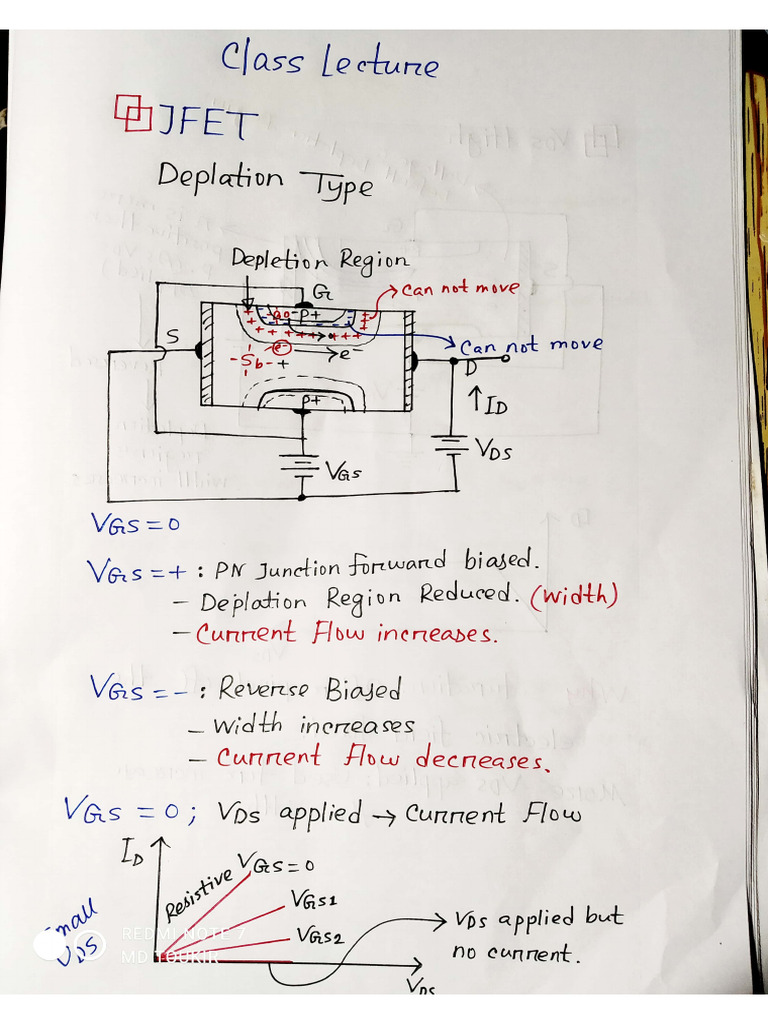 Class Lecture
JFET
Deplation Type
Depletion Region
G
Can not move
P+
S
Can not move
e-
e-
D
ID
P+
VDS
VGS
VGS = 0
VGS = + : PN Junction forward biased.
- Deplation Region Reduced. (width)
- Current Flow increases.
VGS = - : Reverse Biased
- Width increases
- Current Flow decreases.
VGS = 0 ; VDS applied → Current Flow
ID
Resistive
VGS = 0
VGS1
VGS2
Small
VDS
VDS applied but
no current.
VDS
REDMI NOTE 7
MD TOUKIR